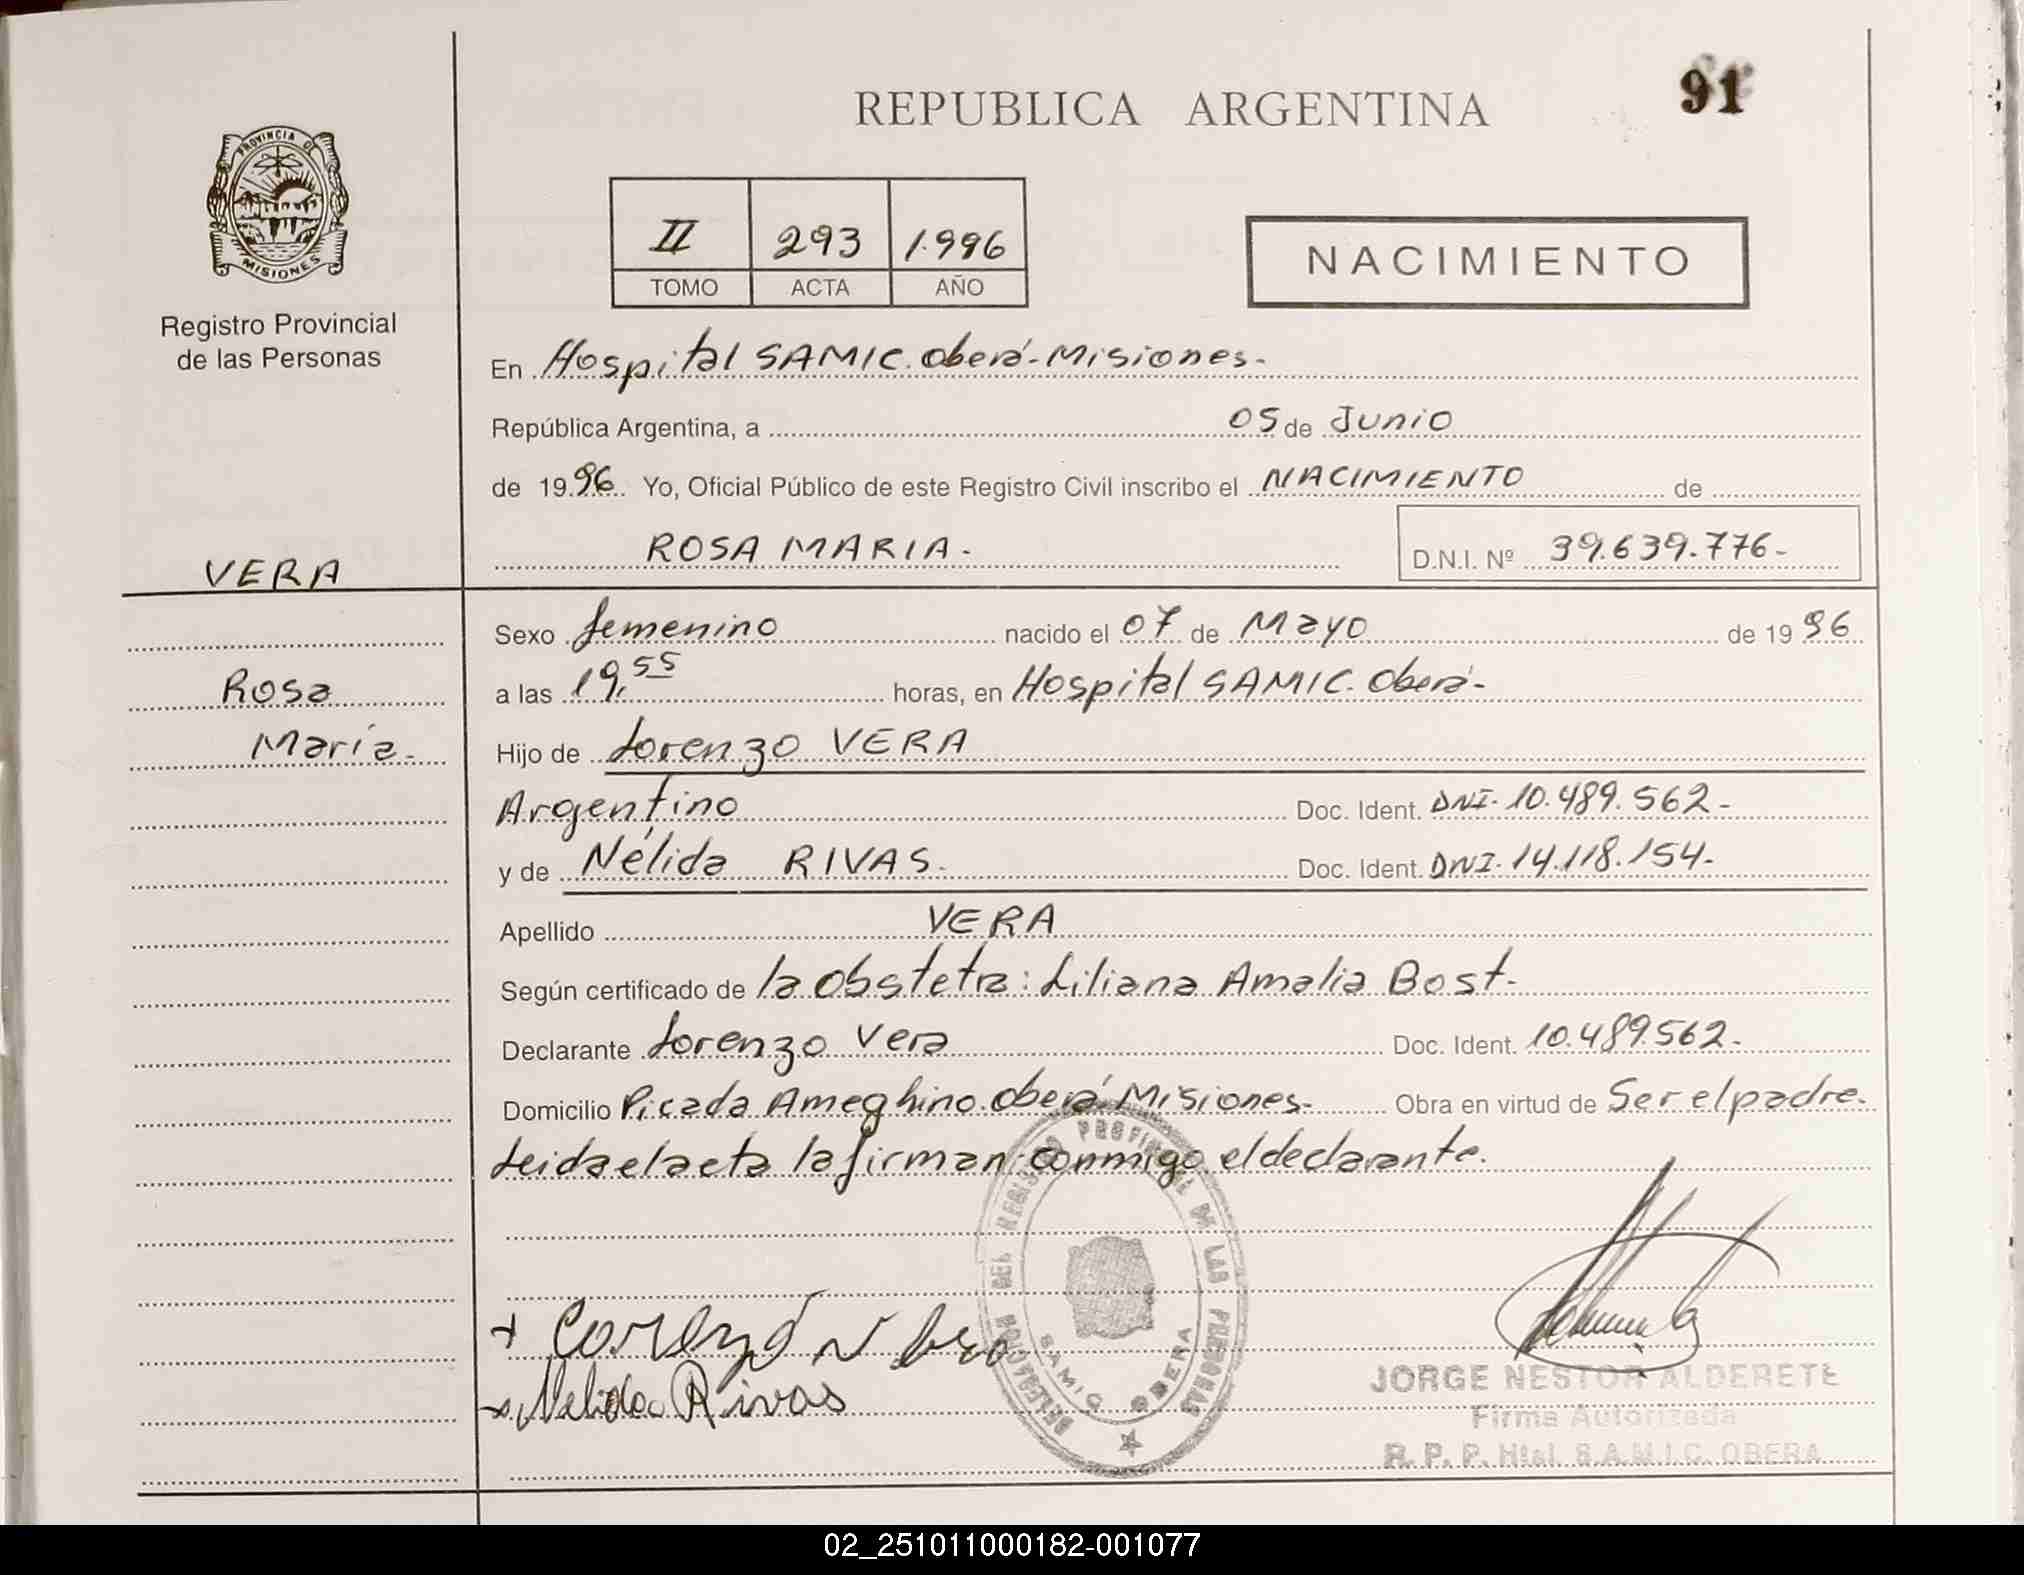 REPUBLICA ARGENTINA
91
PROVINCIA DE
MISIONES
Registro Provincial
de las Personas
II 293 1.996
TOMO ACTA AÑO
NACIMIENTO
En Hospital SAMIC. Oberá-Misiones-
República Argentina, a 05 de Junio
de 1996 Yo, Oficial Público de este Registro Civil inscribo el NACIMIENTO de
ROSA MARIA-
D.N.I. Nº 39.639.776-
VERA
Rosa
María-
Sexo femenino nacido el 07 de Mayo de 1996
a las 19,55 horas, en Hospital SAMIC. Oberá-
Hijo de Lorenzo VERA
Argentino Doc. Ident. DNI- 10.489.562-
y de Nélida RIVAS- Doc. Ident. DNI- 14.118.154-
Apellido VERA
Según certificado de la obstetra: Liliana Amalia Bost-
Declarante Lorenzo Vera Doc. Ident. 10.489.562-
Domicilio Picada Ameghino. Oberá Misiones- Obra en virtud de Ser el padre-
Leida el acta la firman conmigo el declarante.
Nelida Rivas
DELEGACION DEL REGISTRO PROVINCIAL DE LAS PERSONAS
SAMIC OBERA
JORGE NESTOR ALDERETE
Firma Autorizada
R. P. P. Htal. S.A.M.I.C. OBERA
02_251011000182-001077